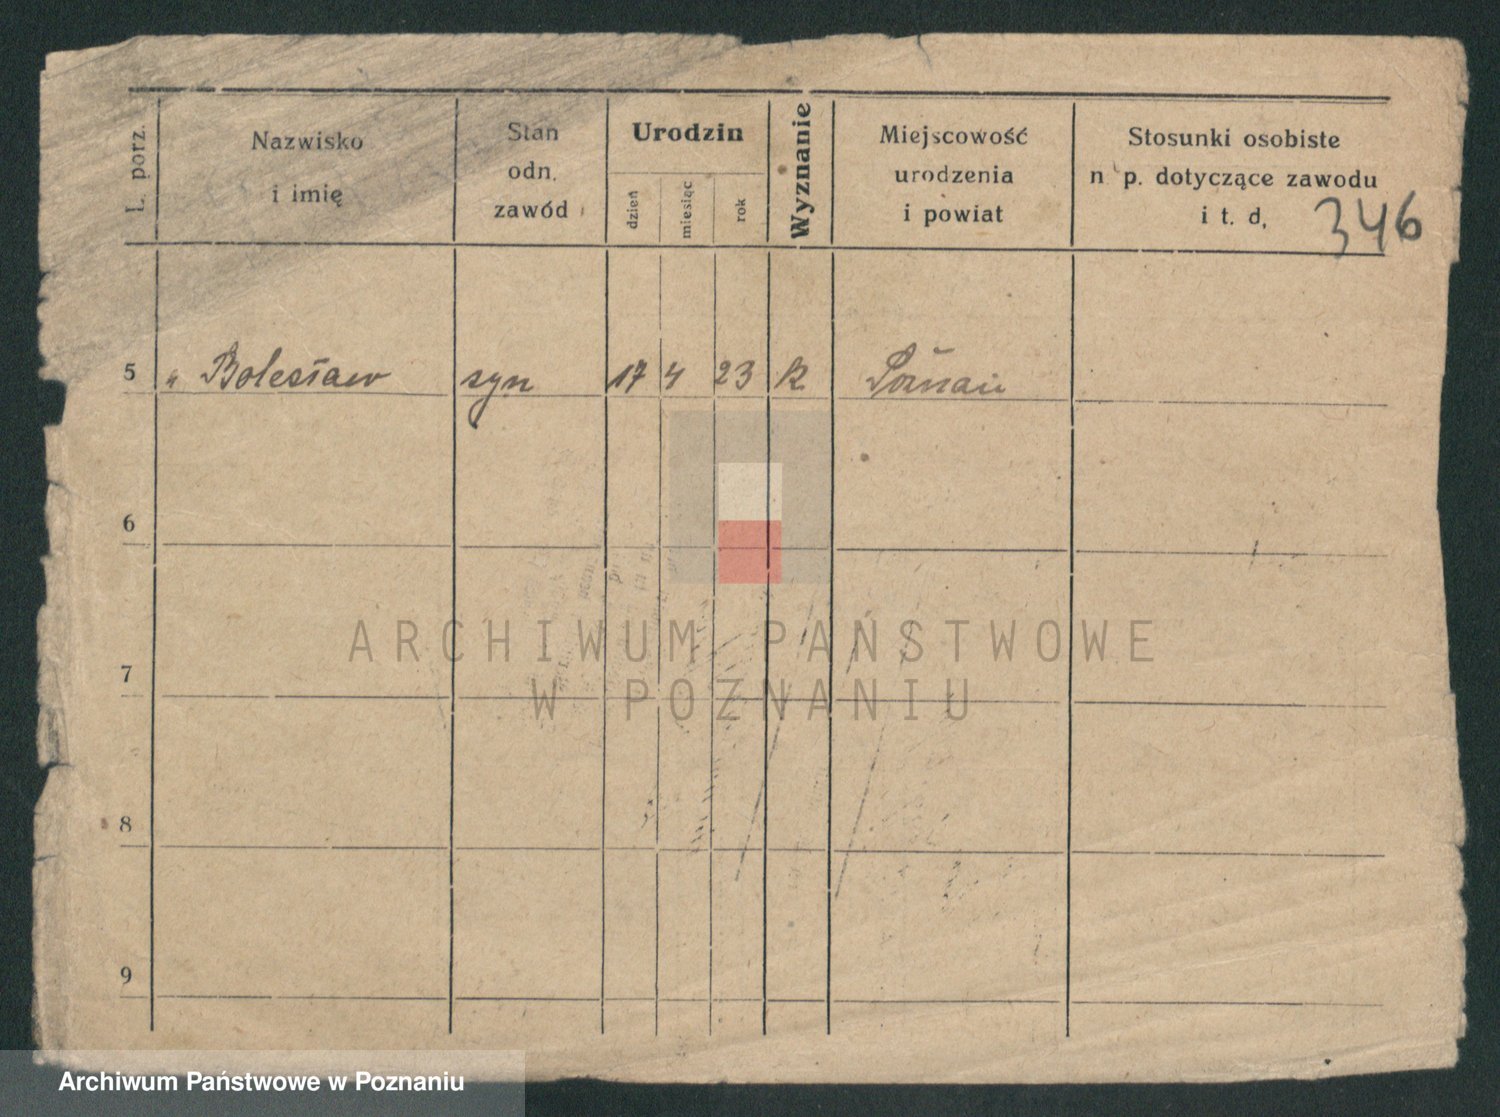 L. porz.
Nazwisko
i imię
Stan
odn.
zawód
Urodzin
dzień
miesiąc
rok
Wyznanie
Miejscowość
urodzenia
i powiat
Stosunki osobiste
n p. dotyczące zawodu
i t. d,
346
5 " Bolesław syn 17 4 23 k Poznań
6
7
8
9
ARCHIWUM PAŃSTWOWE
W POZNANIU
Archiwum Państwowe w Poznaniu